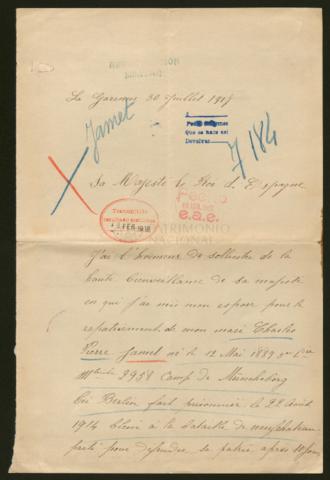 La Garenne 30 Juillet 1917
Jamet
Que se hace así
Devolver
7184
Sa Majesté le Roi d'Espagne
Transmitido
FEB 1918
e.a.e.
PATRIMONIO
NACIONAL
J'ai l'honneur de solliciter de la
haute bienveillance de sa majesté
en qui j'ai mis mon espoir pour le
rapatriement de mon mari Charles
Pierre Jamet né le 12 Mai 1889
2958 Camp de Müncheberg
Berlin fait prisonnier le 22 Août
1914 blessé à la bataille de neufchateau
parti pour défendre sa patrie après